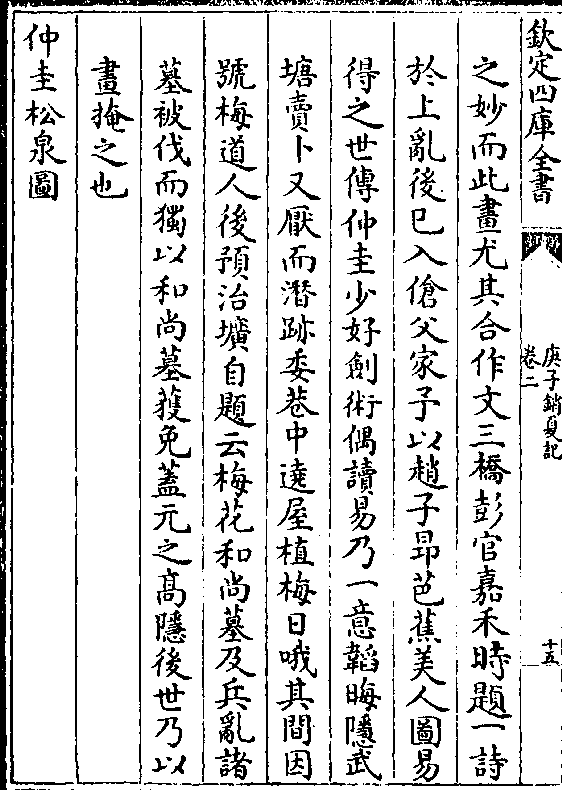 欽定四庫全書
庚子銷夏記
卷二
十五
之妙而此畫尤其合作文三橋彭官嘉禾時題一詩
於上亂後已入傖父家予以趙子昂芭蕉美人圖易
得之世傳仲圭少好劍術偶讀易乃一意韜晦隱武
塘賣卜又厭而潛跡委巷中遶屋植梅日哦其間因
號梅道人後預治壙自題云梅花和尚墓及兵亂諸
墓被伐而獨以和尚墓獲免蓋元之高隱後世乃以
畫掩之也
仲圭松泉圖